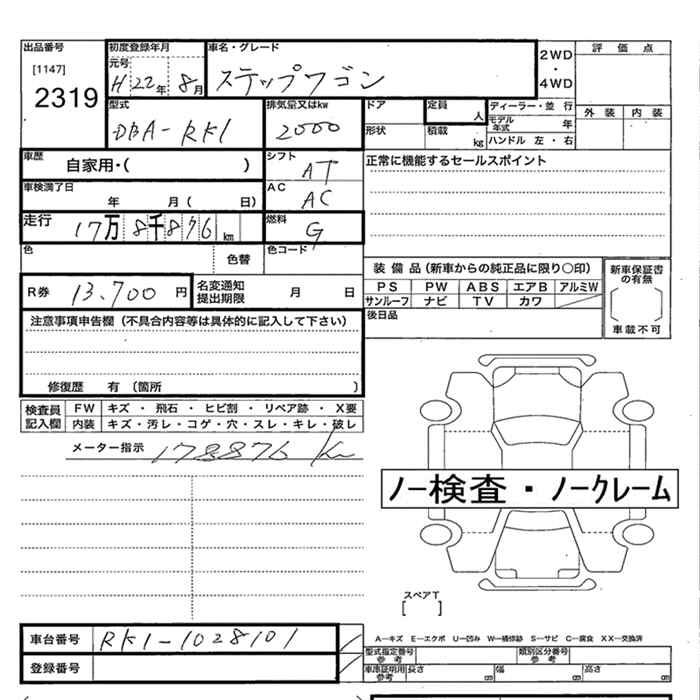 出品番号
[1147]
2319
初度登録年月
元号
H 22 年 8 月
車名・グレード
ステップワゴン
2WD
・
4WD
評価点
外装 内装
型式
DBA-RK1
排気量又はkw
2000
ドア
定員
人
形状
積載
kg
ディーラー・並行
モデル年式 年
ハンドル 左・右
車歴
自家用・( )
シフト
AT
正常に機能するセールスポイント
車検満了日
年 月( 日)
AC
AC
走行
17万8千876km
燃料
G
色
色替
色コード
装備品(新車からの純正品に限り○印)
PS PW ABS エアB アルミW
サンルーフ ナビ TV カワ
新車保証書の有無
[ ]
車載不可
R券 13,700 円
名変通知提出期限
月 日
後日品
注意事項申告欄(不具合内容等は具体的に記入して下さい)
修復歴 有 〔箇所 〕
検査員記入欄
FW キズ・飛石・ヒビ割・リペア跡・X要
内装 キズ・汚レ・コゲ・穴・スレ・キレ・破レ
メーター指示 178876 Km
ノー検査・ノークレーム
スペアT
[ ]
車台番号 RK1-1028101
登録番号
A—キズ E—エクボ U—凹み W—補修跡 S—サビ C—腐食 XX—交換済
型式指定番号
参考
類別区分番号
参考
車庫証明用
参考
長さ cm 幅 cm 高さ cm